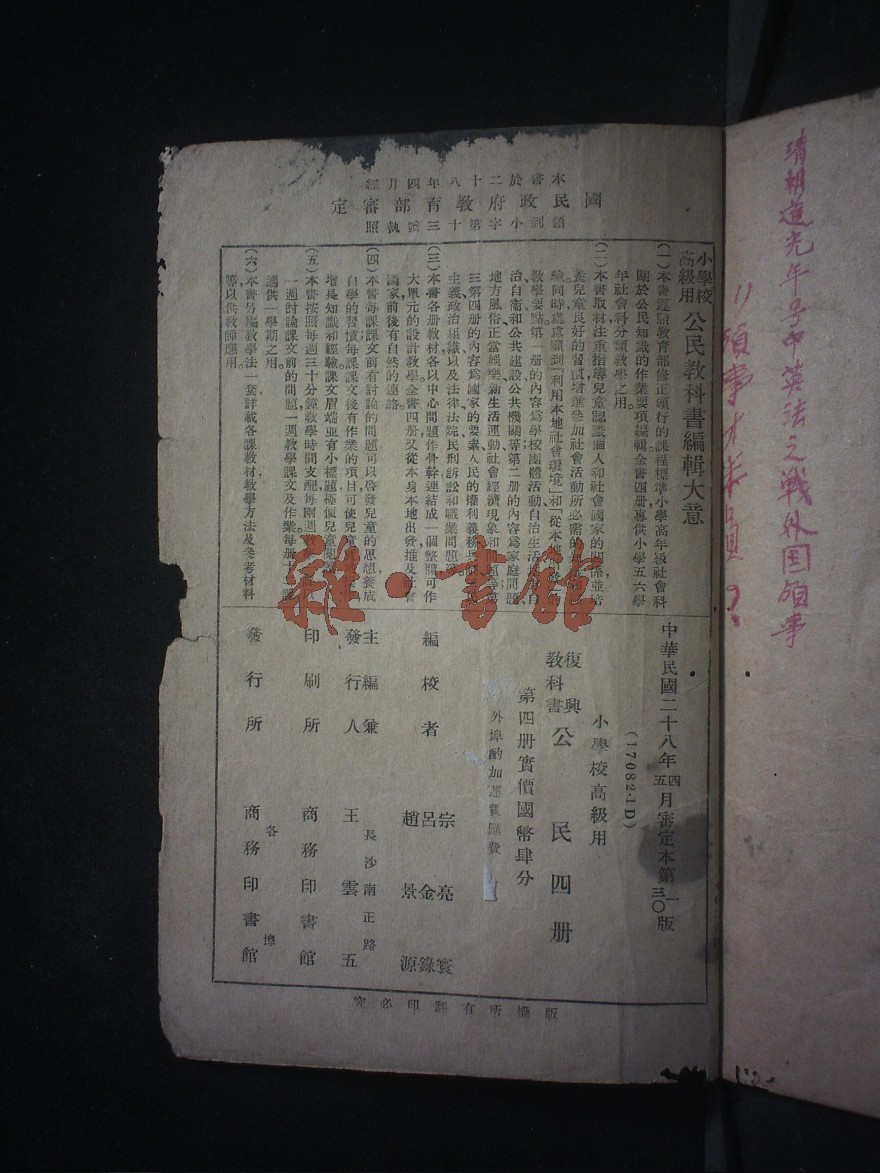 本書於二十八年四月經
國民政府教育部審定
領到小字第十三號執照
小學校高級用 公民教科書編輯大意
(一)本書遵照教育部修正頒行的課程標準小學高年級社會科
關於公民知識的作業要項編輯全書四册專供小學五六學
年社會科分類教學之用。
(二)本書取材注重指導兒童認識個人和社會國家的關係並培
養兒童良好的習慣增進參加社會活動所必需的
驗同時處處顧到「利用本地社會環境」和「從本
教學要點第一册的内容爲學校團體活動自治生活
治自衞和公共建設公共機關等第二册的内容爲家庭問題
地方風俗正當娛樂新生活運動社會經濟現象和
三第四册的内容爲國家的要素人民的權利義務
主義政治組織以及法律法院民刑訴訟和職業問題
(三)本書各册教材各以中心問題作骨幹連結成一個整體可作
大單元的設計教學全書四册又從本身本地出發推及社會
國家前後有自然的連絡。
(四)本書每課課文前有討論的問題可以啓發兒童的思想養成
自學的習慣每課課文後有作業的項目可使兒童
增長知識和經驗課文眉端並有小標題極便兒童閱
(五)本書按照每週三十分鐘教學時間支配每兩週
一週討論課文前的問題一週教學課文及作業每册十
適供一學期之用。
(六)本書另編教學法一套詳載各課教材教學方法及參考材料
等以供教師應用。
中華民國二十八年四五月審定本第一三〇版
(17082·1D)
小學校高級用
復興教科書 公民四册
第四册實價國幣肆分
外埠酌加運費匯費
編校者 宗亮寰 呂金錄 趙景源
主編兼發行人 王雲五
長沙南正路
印刷所 商務印書館
發行所 各埠 商務印書館
版權所有翻印必究
雜·書館
清朝道光年号中英法之戰外国領事